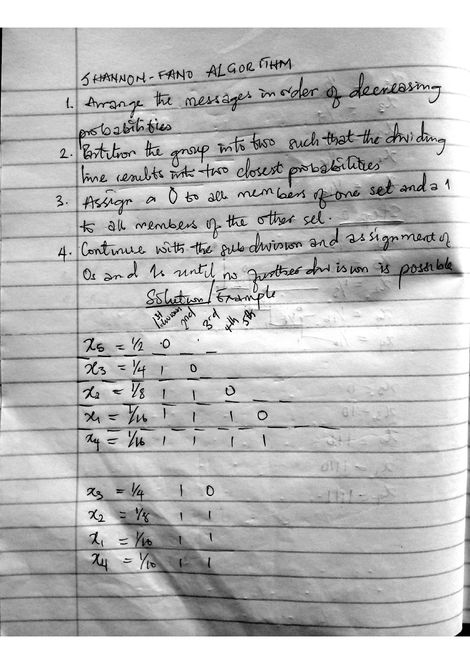 SHANNON-FANO ALGORITHM
1. Arrange the messages in order of decreasing
probabilities
2. Partition the group into two such that the dividing
line results into two closest probabilities
3. Assign a 0 to all members of one set and a 1
to all members of the other set.
4. Continue with the subdivision and assignment of
0s and 1s until no further division is possible
Solution/Example
1st division 2nd 3rd 4th 5th
x5 = 1/2 0
x3 = 1/4 1 0
x2 = 1/8 1 1 0
x1 = 1/16 1 1 1 0
x4 = 1/16 1 1 1 1
x3 = 1/4 1 0
x2 = 1/8 1 1
x1 = 1/16 1 1
x4 = 1/16 1 1